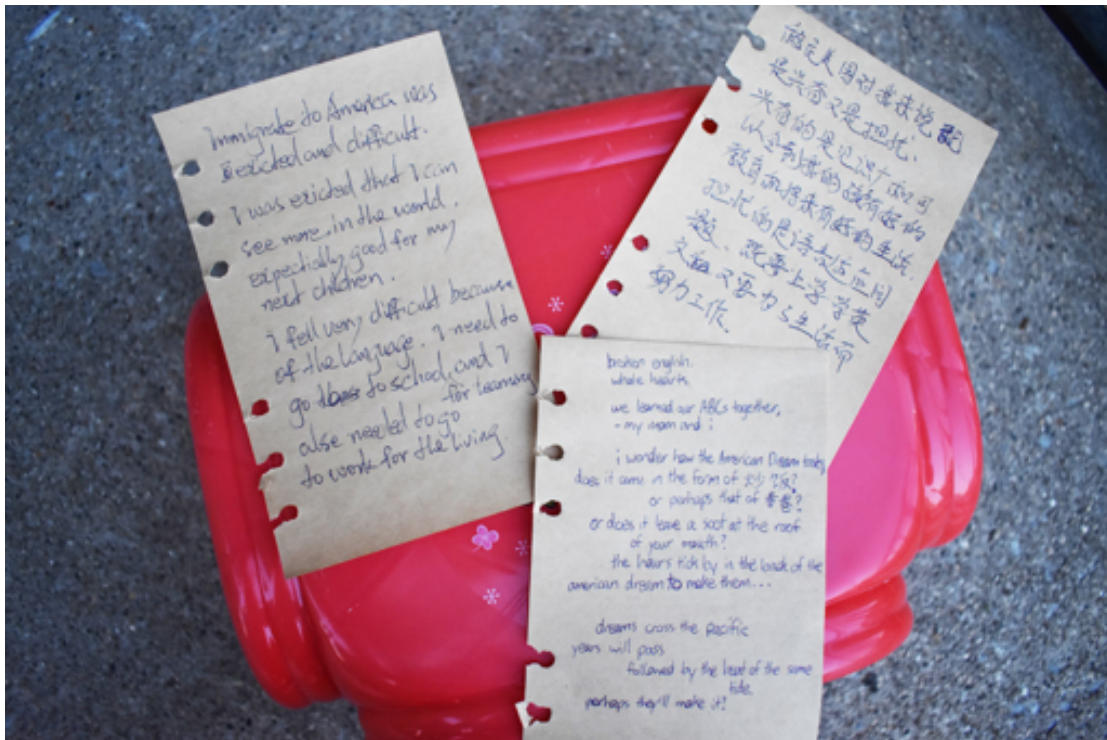 Immigrate to America was
exricted and difficult.
I was exricted that I can
see more in the world.
expectially good for my
next children.
i fell very difficult because
of the language. I need to
go to school and I
for learning
alse needed to go
to work for the living.
移定美国对我来说
是兴奋又是担忧.
兴奋的是见识十和可
以令到我的孩有好的
教育和将来有好的生活.
担忧的是语文方面问
题. 既要上学学英
文 又要为了生活而
努力工作.
broken english.
whole hearts.
we learned our ABCs together,
- my mom and i
i wonder how the American Dream tastes
does it come in the form of 炒饭?
or perhaps that of
or does it leave a soot at the roof
of your mouth?
the hours tick by in the bank of the
american dream to make them...
dreams cross the pacific
years will pass
followed by the heat of the same
tide.
perhaps they'll make it?